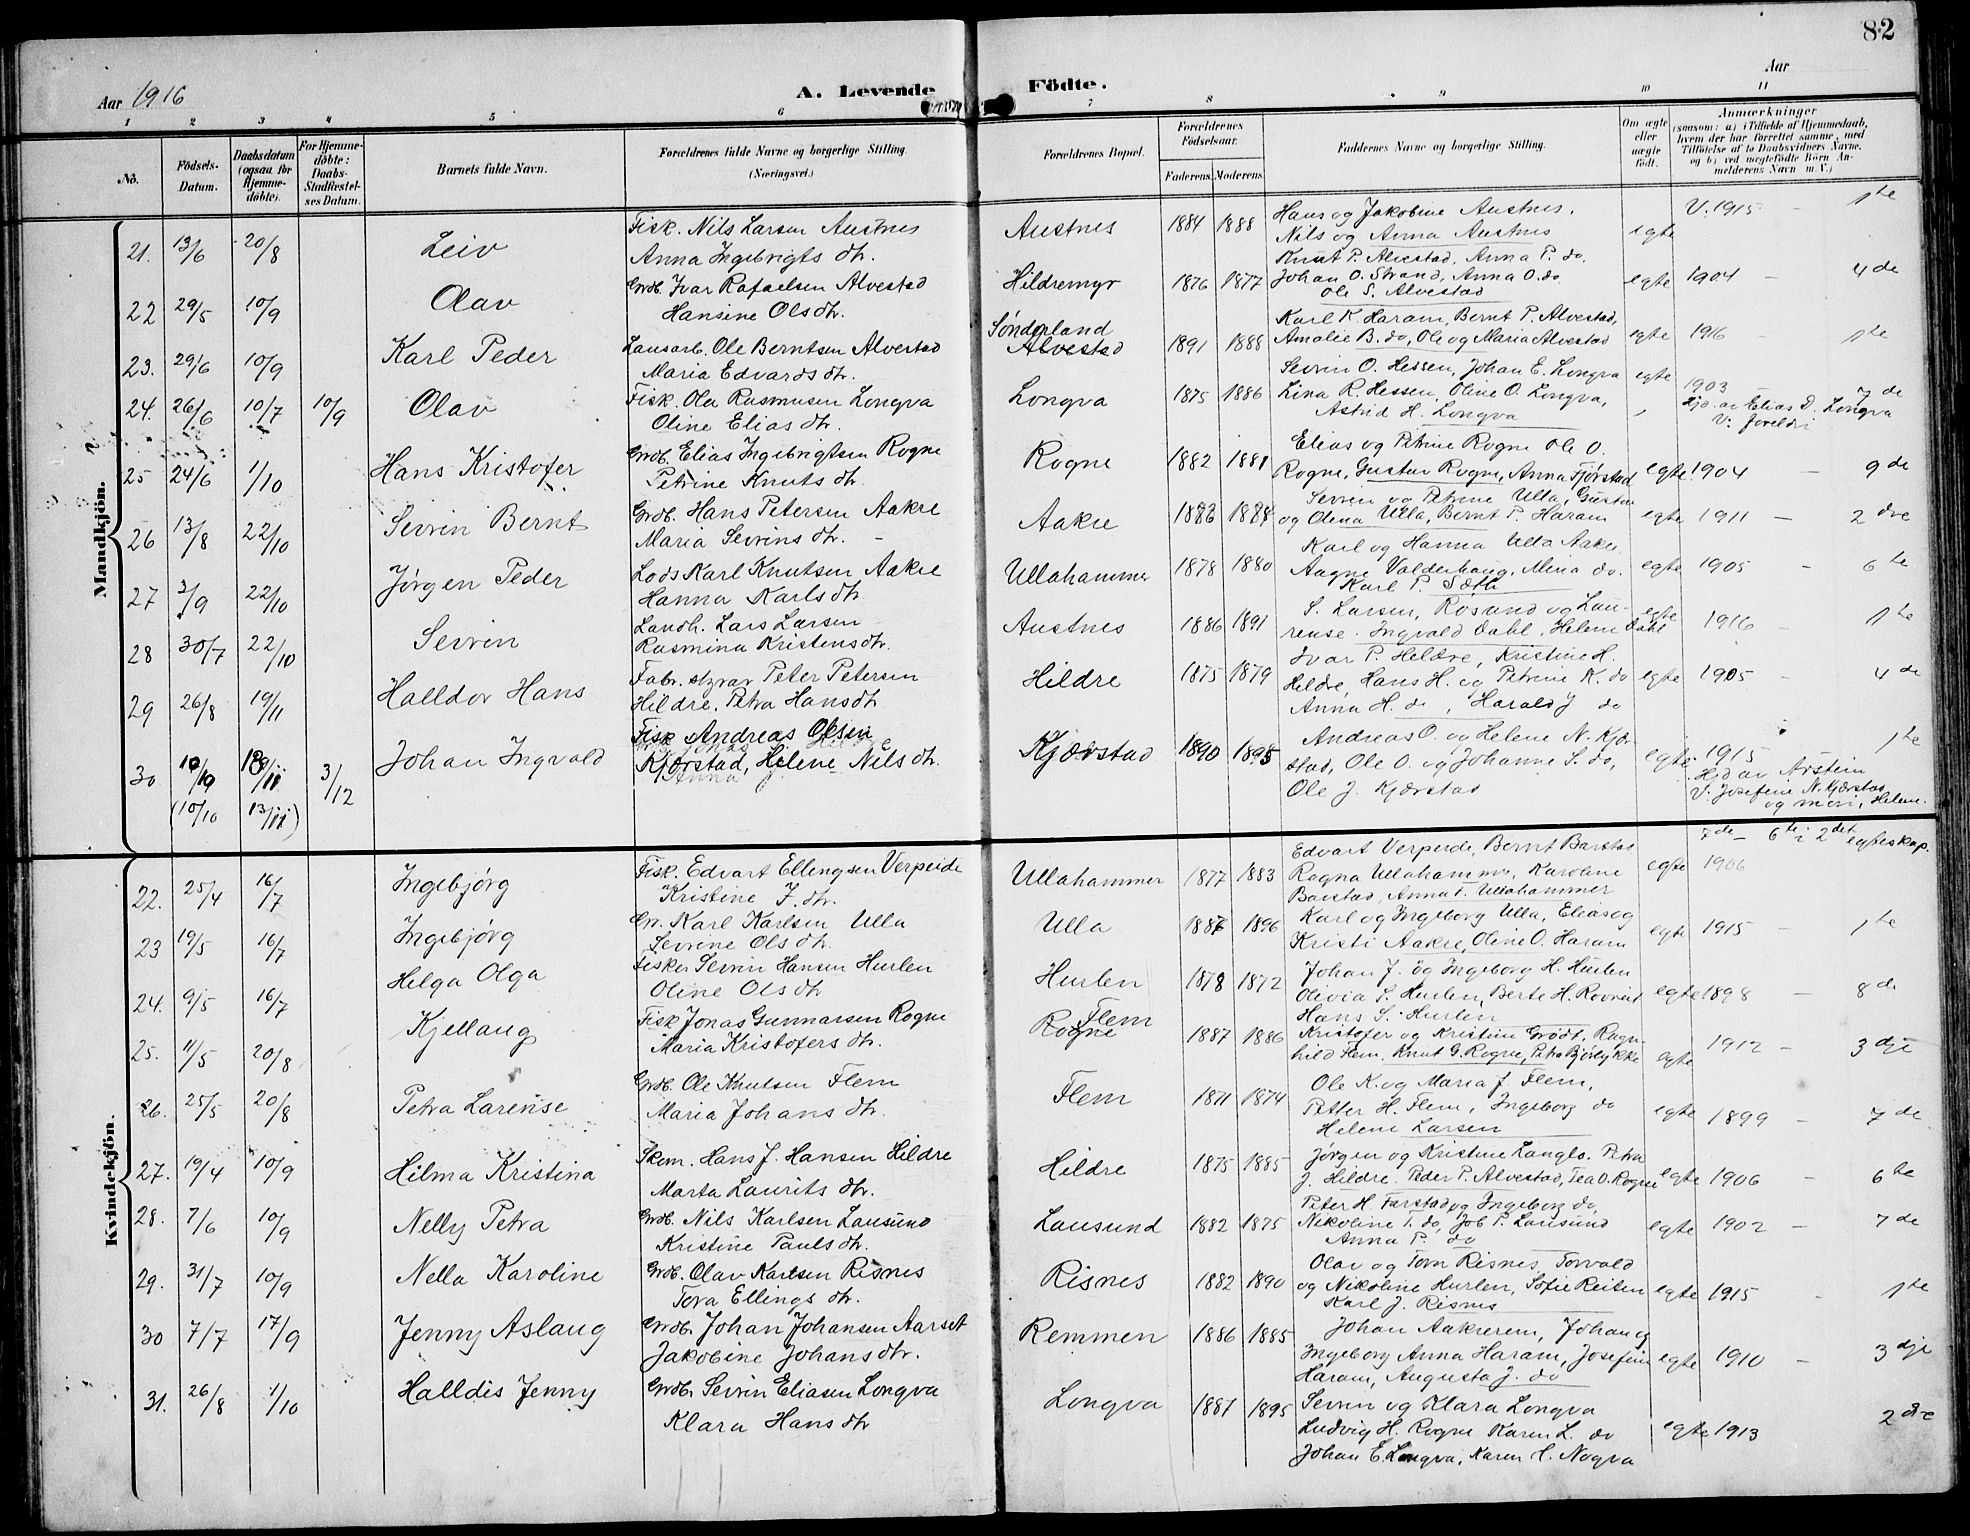 82
Aar 1916
A. Levende Födte.
Aar
1 2 3 4 5 6 7 8 9 10 11
No.
Födsels-Datum.
Daabsdatum (ogsaa for Hjemme-döbte).
For Hjemme-döbte: Daabs-Stadfæstel-ses Datum.
Barnets fulde Navn.
Forældrenes fulde Navne og borgerlige Stilling. (Næringsvei.)
Forældrenes Bopæl.
Forældrenes Födselsaar.
Faderens. Moderens.
Faddernes Navne og borgerlige Stilling.
Om ægte eller uægte födt.
Anmærkninger
(saasom: a) i Tilfælde af Hjemmedaab, hvem der har forrettet samme, med Tilföielse af to Daabsvidners Navne. og b) ved uægtefödte Börn An-melderens Navn m. V.)
Mandkjön.
21. 13/6 20/8 Leiv
Fisk. Nils Larsen Austnes
Anna Ingebrigts dtr.
Austnes 1884 1888
Hans og Jakobine Austnes.
Nils og Anna Austnes
egte V. 1915 - 1te
22 29/5 10/9 Olav
Grdb. Ivar Rafaelsen Alvestad
Hansine Olsdtr.
Hildremyr 1876 1877
Knut P. Alvestad, Anna P. do.
Johan O. Strand, Anna O. do
Ole S. Alvestad
egte 1904 - 4de
23. 29/6 10/9 Karl Peder
Lausarb. Ole Berntsen Alvestad
Maria Edvardsdtr.
Sönderland
Alvestad 1891 1888
Karl K. Haram, Bernt P. Alvestad,
Amalie B. do, Ole og Maria Alvestad
egte 1916 - 1te
24. 26/6 10/7 10/9 Olav
Fisk. Ole Rasmusen Longva
Oline Elias dtr.
Longva 1875 1886
Sevrin O. Hessen, Johan E. Longva
Lina R. Hessen, Oline O. Longva,
Astrid H. Longva
egte 1903 - 7de
Hjd. av Elias D. Longva
V. foreldri
25 24/6 1/10 Hans Kristofer
Grdb. Elias Ingebrigtsen Rogne
Petrine Knuts dtr.
Rogne 1882 1881
Elias og Petrine Rogne Ole O.
Rogne, Gustav Rogne, Anna Fjørstad
egte 1904 - 9de
26 13/8 22/10 Sevrin Bernt
Grdb. Hans Petersen Aakre
Maria Sevrins dtr. -
Aakre 1883 1884
Sevrin og Petrine Ulla, Gustav
og Olena Ulla, Bernt P. Haram
egte 1911 - 2dre
27 3/9 22/10 Jørgen Peder
Lods Karl Knutsen Aakre
Hanna Karlsdtr
Ullahammer 1878 1880
Karl og Hanna Ulla Aakre.
Aagne Valderhaug, Mena do.
Karl P. Sæth
egte 1905 - 6te
28 30/7 22/10 Sevrin
Landh. Lars Larsen
Rasmina Kristensdtr.
Austnes 1886 1891
S. Larsen, Rosand og Lau-
rense. Ingvald Dahl, Helene Dahl
egte 1916 - 1te
29 26/8 19/11 Halldor Hans
Fabr. styrar Peter Petersen
Hildre, Petra Hansdtr
Hildre 1875 1879
Ivar P. Hildre, Kristine H.
Hildre, Hans H. og Petrine K. do
Anna H. do, Harald J do
egte 1905 - 4de
30 10/10 18/11 3/12 Johan Ingvald
(10/10 13/11)
Fisk Andreas Olsen
Kjærstad, Helene Nils dtr.
Kjærstad 1890 1895
Andreas O. og Helene N. Kjær
stad, Ole O. og Johanne S. do,
Ole J. Kjærstad
egte 1915 1te
Hjd av Arstein
V. Josefine N. Kjærstad
og mori, Helene.
Kvindekjön.
22. 25/4 16/7 Ingebjørg
Fisk. Edvart Ellengsen Verpeide
Kristine J. dtr.
Ullahammer 1877 1883
Edvart Verpeide, Bernt Barstad
Ragna Ullahammer, Karoline
Barstad, Anna T. Ullahammer
egte 1906
7de - 6te i 2det egteskap.
23 19/5 16/7 Ingebjørg
Gr. Karl Karlsen Ulla
Sevrine Ols dtr.
Ulla 1886 1896
Karl og Ingeborg Ulla, Elias og
Kristi Aakre, Oline O. Haram
egte 1915 - 1te
24. 9/5 16/7 Helga Olga
Fisker Sevrin Hansen Hurlen
Oline Ols dtr
Hurlen 1878 1872
Johan J. og Ingeborg H. Hurlen
Olivia S. Hurlen, Berte H. Rovnes
Hans S. Hurlen
egte 1898 - 8de
25. 11/5 20/8 Kjellaug
Fisk Jonas Gunnarsen Rogne
Maria Kristofers dtr.
Flem
Rogne 1887 1886
Kristofer og Kristine Grødt, Ragn-
hild Flem, Knut G. Rogne, Petra Bjørlykke
egte 1912 - 3dje
26. 25/5 20/8 Petra Larense
Grdb. Ole Knutsen Flem
Maria Johans dtr.
Flem 1871 1874
Ole K. og Maria J. Flem,
Petter H. Flem, Ingeborg do
Helene Larsen
egte 1899 - 7de
27. 19/4 10/9 Hilma Kristina
Skem. Hans J. Hansen Hildre
Marta Laurits dtr.
Hildre 1875 1885
Jørgen og Kristine Langlo. Petra
J. Hildre. Peder P. Alvestad, Tea O. Rogne
egte 1906 - 6te
28. 7/6 10/9 Nelly Petra
Grdb. Nils Karlsen Lausund
Kristine Pauls dtr.
Lausund 1882 1875
Peter H. Farstad og Ingeborg do,
Nikoline T. do, Job P. Lausund
Anna P. do
egte 1902 - 7de
29. 31/7 10/9 Nella Karoline
Grdb. Olav Karlsen Risnes
Tora Ellings dtr.
Risnes 1882 1890
Olav og Tora Risnes, Torvald
og Nikoline Hurlen, Sofie Reiten
Karl J. Risnes
egte 1915 - 1te
30 7/7 17/9 Jenny Aslaug
Grdb. Johan Johansen Aarset
Jakobine Johansdtr.
Remmen 1886 1885
Johan Aakrerem, Johan og
Ingeborg Anna Haram, Josefine
Haram, Augusta J. do
egte 1910 - 3dje
31. 26/8 1/10 Halldis Jenny
Grdb. Sevrin Eliasen Longva
Klara Hans dtr
Longva 1887 1895
Sevrin og Klara Longva
Ludvig H. Rogne Karen L. do
Johan E. Longva, Karen H. Nogva
egte 1913 2dre